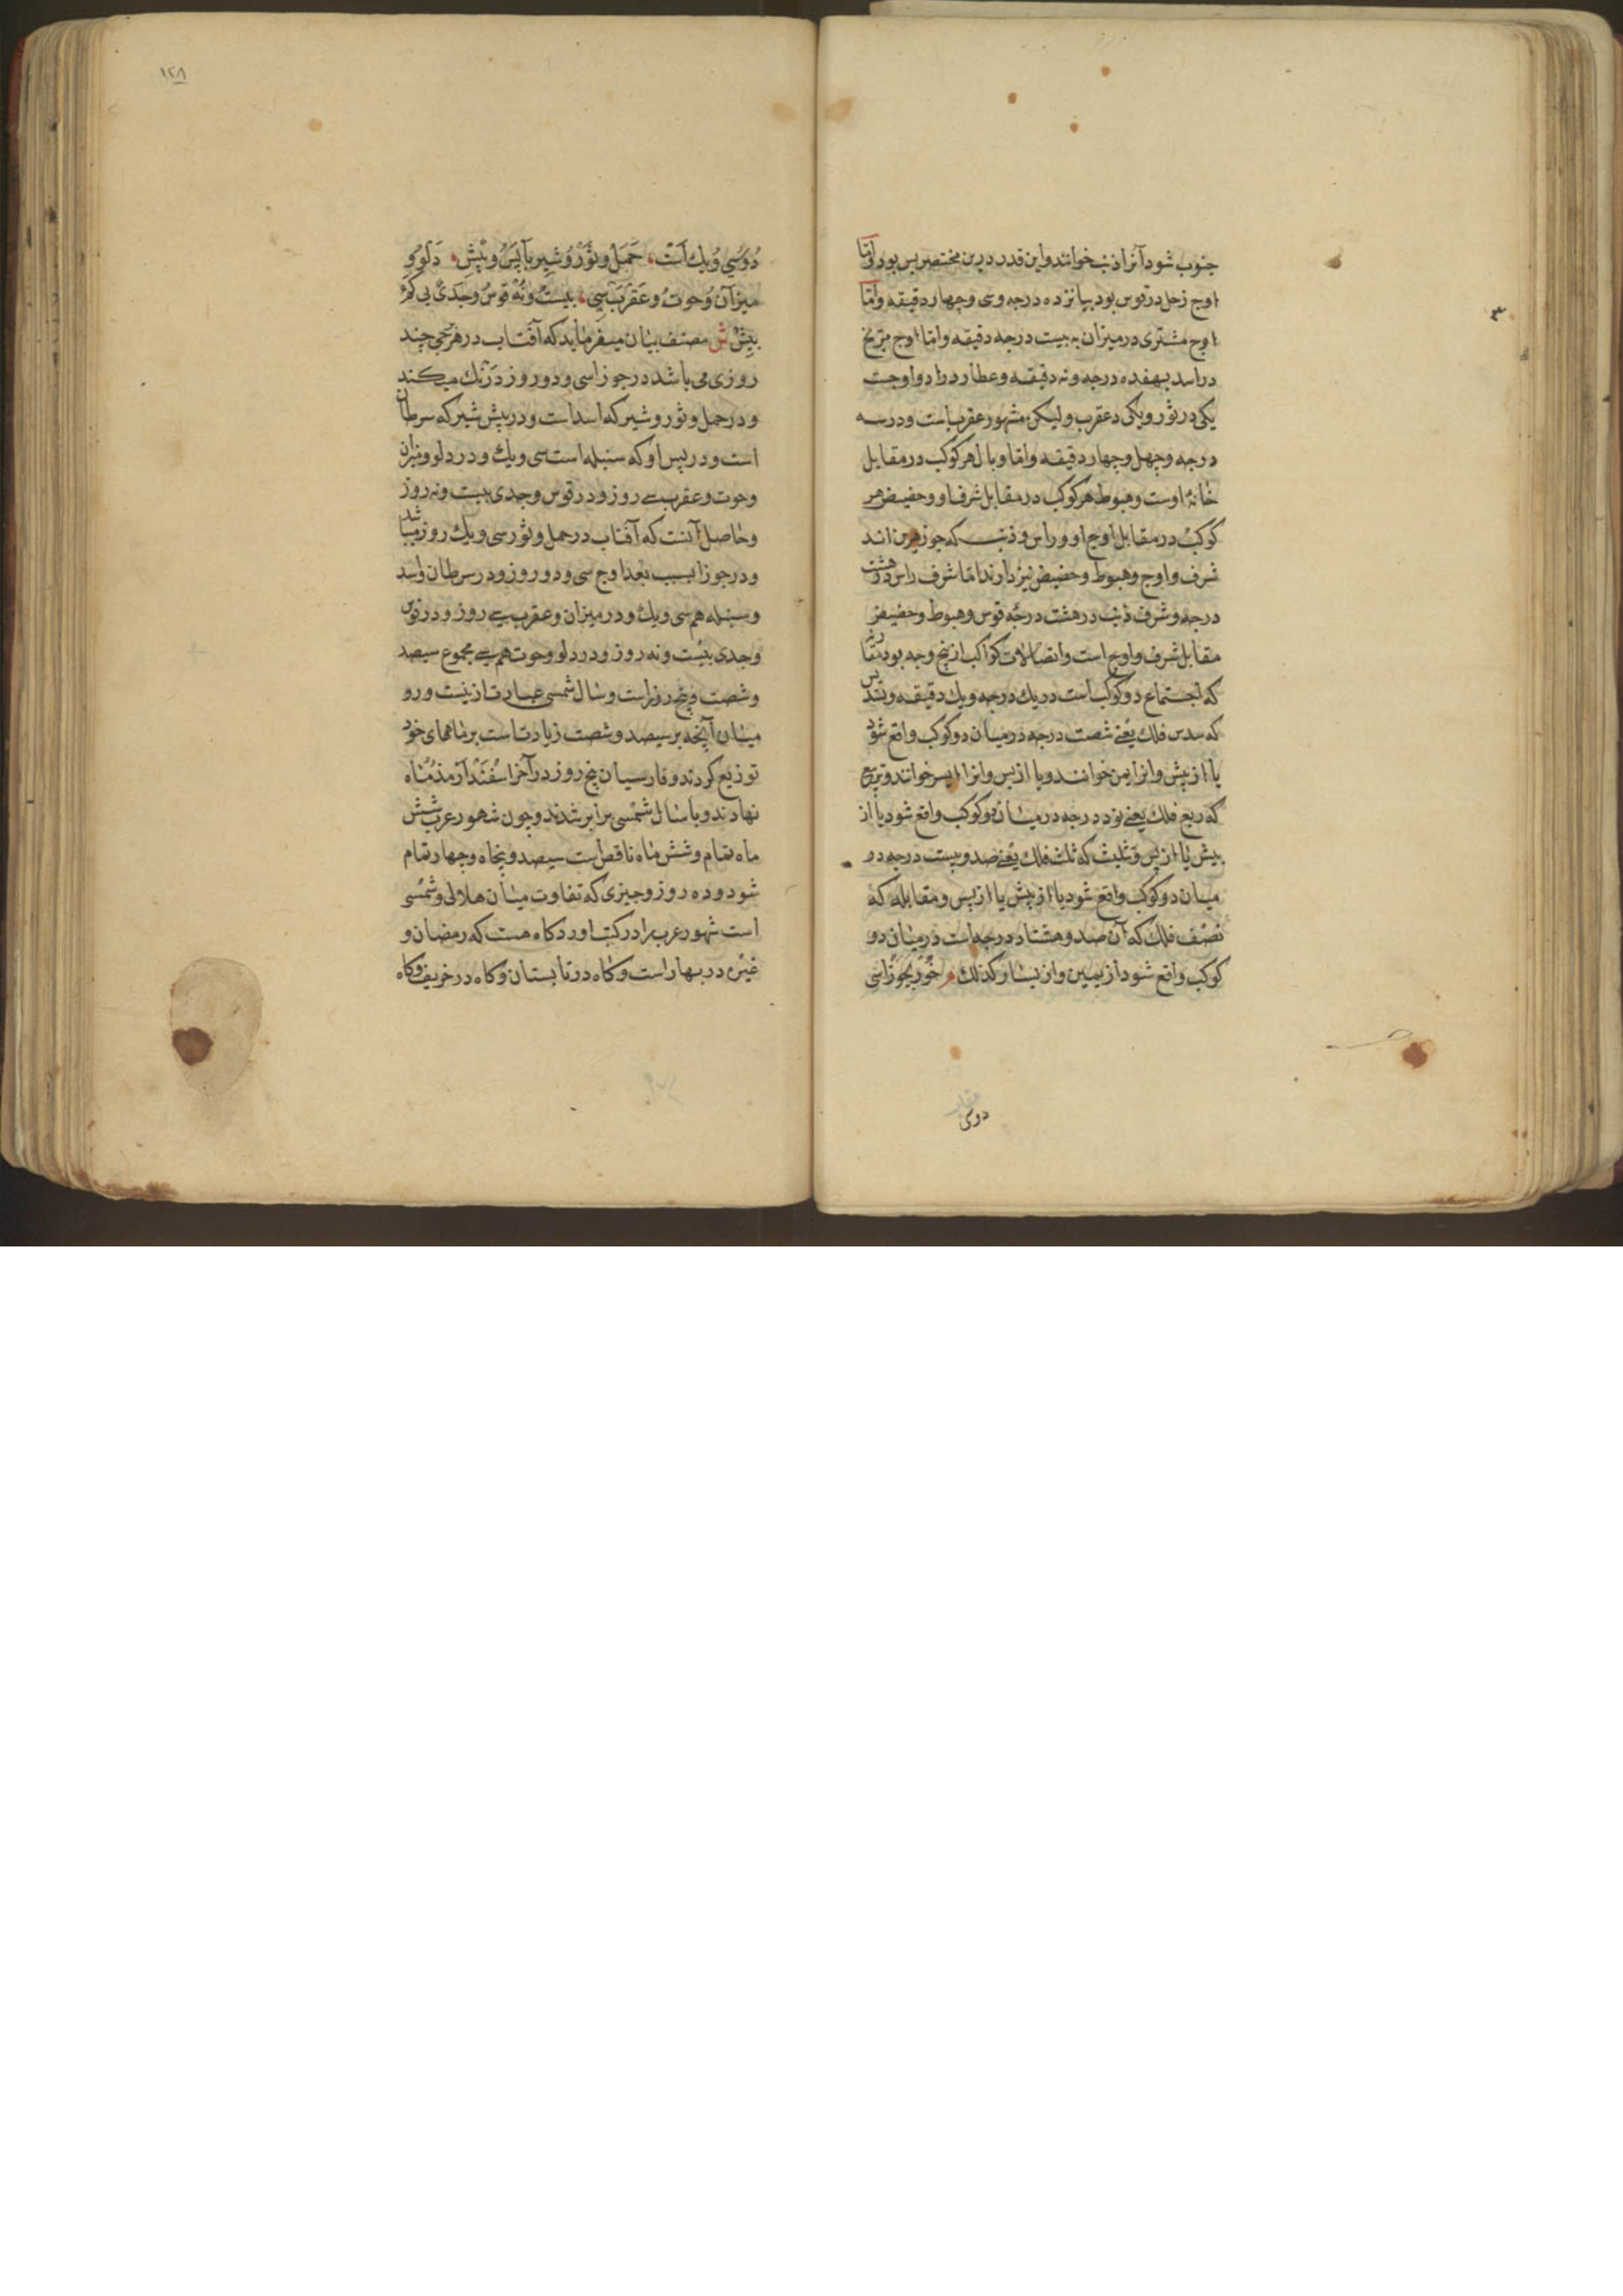 جنوب شود آنرا ذنب خوانند و این قدر درین مختصر بس بود و اما
اوج زحل در قوس بود بپانزده درجه و سی و چهار دقیقه و اما
اوج مشتری در میزان به بیست درجه دقیقه و اما اوج مریخ
در اسد بهفده درجه و نه دقیقه و عطارد را دو اوجست
یکی در ثور و یکی د عقرب و لیکن مشهور عقرب است و در سه
درجه و چهل و چهار دقیقه و اما وبال هر کوکب در مقابل
خانهٔ اوست و هبوط هر کوکب در مقابل شرف او و حضیض هر
کوکب در مقابل اوج او و راس و ذنب که جوزهرین اند
شرف و اوج و هبوط و حضیض نیز دارند اما شرف راس در هشت
درجه و شرف ذنب در هشت درجهٔ قوس و هبوط و حضیض
مقابل شرف و اوج است و اتصالات کواکب از پنج وجه بود مقارنه
که اجتماع دو کوکب است در یک درجه و یک دقیقه و تسدیس
که سدس فلک یعنی شصت درجه در میان دو کوکب واقع شود
یا از پیش و انرا ایمن خوانند و یا از پس و انرا ایسر خوانند و تربیع
که ربع فلک یعنی نود درجه در میان دو کوکب واقع شود یا از
پیش یا از پس و تثلیث که ثلث فلک یعنی صد و بیست درجه در
میان دو کوکب واقع شود یا از پیش یا از پس و مقابله که
نصف فلک که آن صد و هشتاد درجه است در میان دو
کوکب واقع شود از یمین و از یسار و کذلک م خور بجوزا سی
دوسی
۱۲۸
دو و سی و یک است حمل و ثور و شیر با پس و پیش دلو و
میزان و حوت و عقرب سی بیست و نه قوس و جدی بی کم
بیش ش مصنف بیان میفرماید که آفتاب در هر برجی چند
روزی می باشد در جوزا سی و دو روز درنگ میکند
و در حمل و ثور و شیر که اسد است و در پیش شیر که سرطان
است و در پس او که سنبله است سی و یک و در دلو و میزان
و حوت و عقرب سی روز و در قوس و جدی بیست و نه روز
و حاصل آنست که آفتاب در حمل و ثور سی و یک روز میباشد
و در جوزا بسبب بعد اوج سی و دو روز و در سرطان و اسد
و سنبله هم سی و یک و در میزان و عقرب سی روز و در قوس
و جدی بیست و نه روز و در دلو و حوت هم سی مجموع سیصد
و شصت و پنج روز است و سال شمسی عبارت ازینست و رو
میان آنچه بر سیصد و شصت زیادت است بر ماههای خود
توزیع کردند و فارسیان پنج روز در آخر اسفندارمذ ماه
نهادند و با سال شمسی برابر شدند و چون شهور عرب شش
ماه تمام و شش ماه ناقص است سیصد و پنجاه و چهار تمام
شود و ده روز و چیزی که تفاوت میان هلالی و شمسی
است شهور عرب را در کتب اورد کاه هست که رمضان و
غیره در بهار است و کاه در تابستان و کاه در خریف و کاه